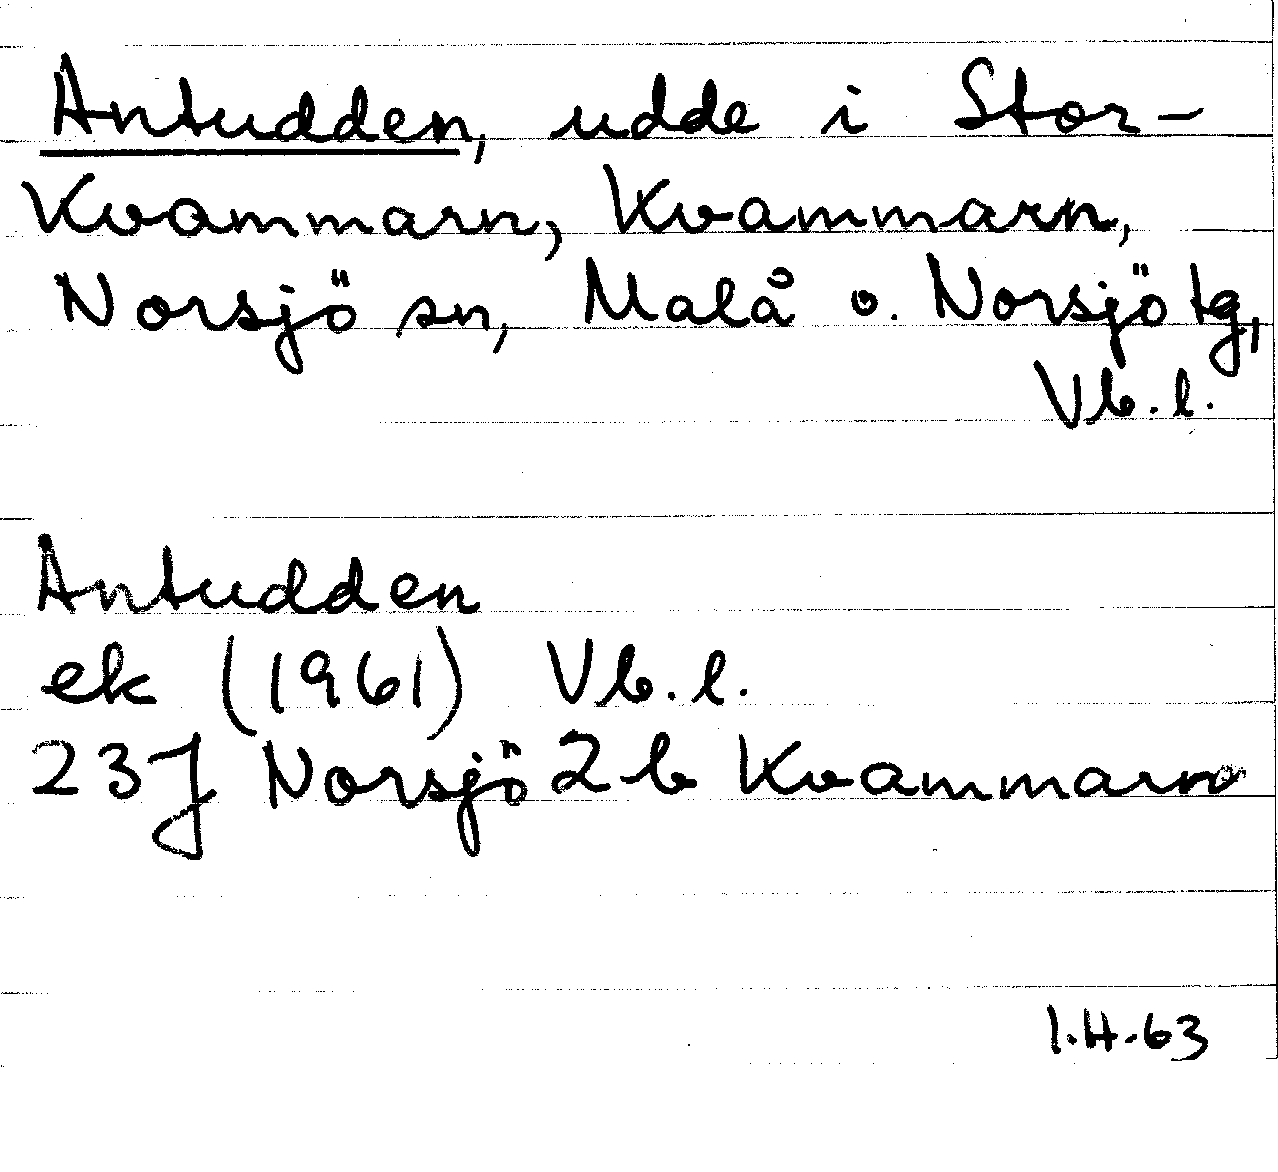 Antudden, udde i Stor-
Kvammarn, Kvammarn,
Norsjö sn, Malå o. Norsjö tg,
Vb. l.
Antudden
ek (1961) Vb. l.
23J Norsjö 2 b Kvammarn
I.H.63